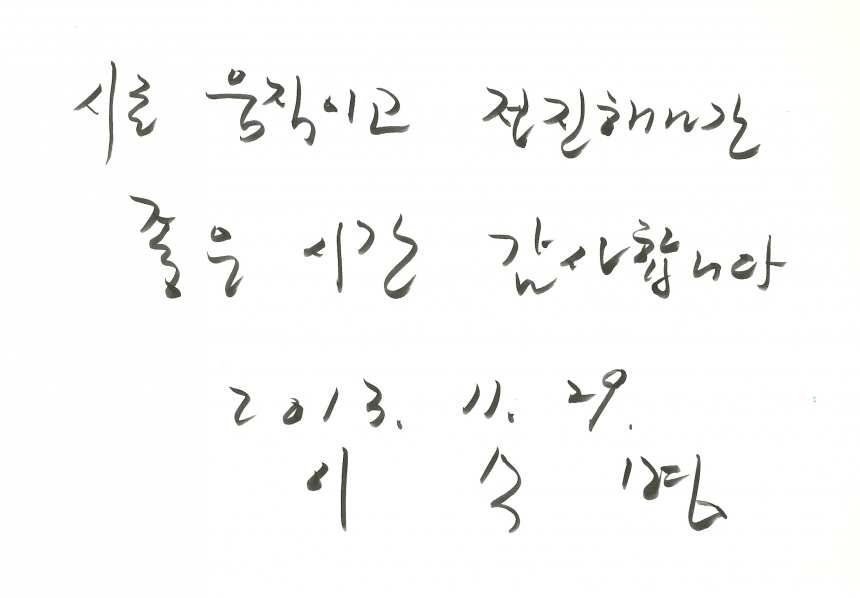 시로 움직이고 전진해나간
좋은 시간 감사합니다
2013. 11. 29.
이 숙